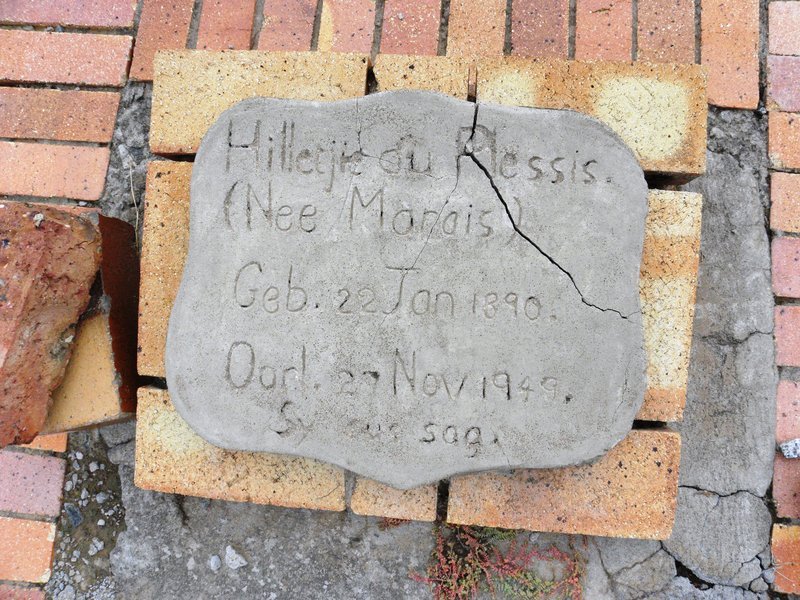 Hillegje du Plessis.
(Nee Marais)
Geb. 22 Jan 1890.
Oorl. 27 Nov 1949.
sag.